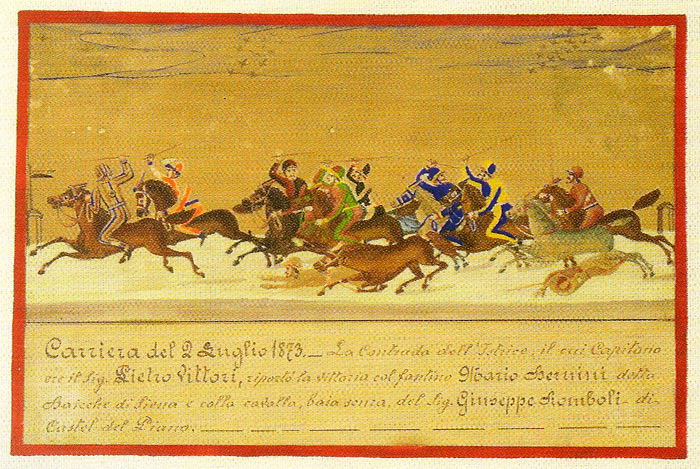 Carriera del 2 Luglio 1873._ La Contrada dell'Istrice, il cui Capitano
era il Sig. Pietro Vittori, riportò la vittoria col fantino Mario Bernini detto
Bachche di Siena e colla cavalla, baia scura, del Sig. Giuseppe Romboli di
Castel del Piano.